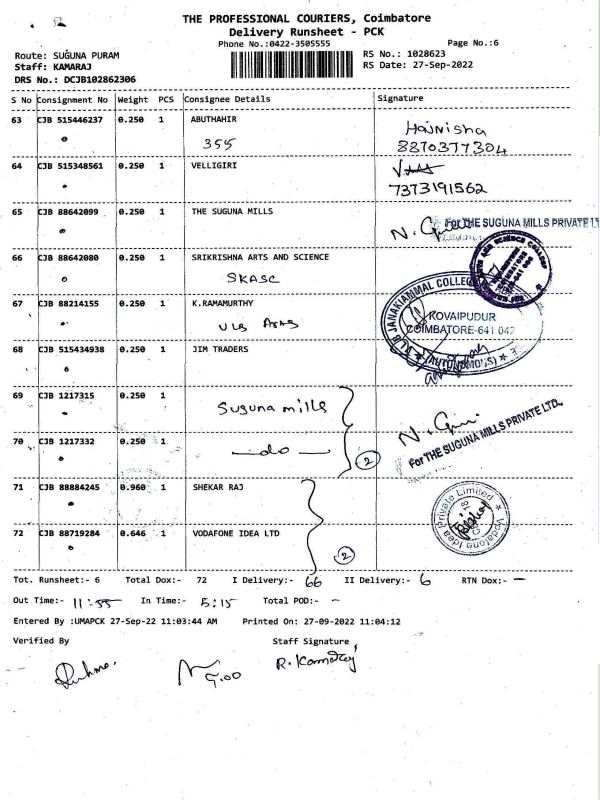 THE PROFESSIONAL COURIERS, Coimbatore
Delivery Runsheet - PCK
Phone No.:0422-3505555 Page No.:6
Route: SUGUNA PURAM RS No.: 1028623
Staff: KAMARAJ RS Date: 27-Sep-2022
DRS No.: DCJB102862306
S No Consignment No Weight PCS Consignee Details Signature
63 CJB 515446237 0.250 1 ABUTHAHIR
355 8870377304
64 CJB 515348561 0.250 1 VELLIGIRI
7373191562
65 CJB 88642099 0.250 1 THE SUGUNA MILLS
N. Giri For THE SUGUNA MILLS PRIVATE LT
66 CJB 88642080 0.250 1 SRIKRISHNA ARTS AND SCIENCE
SKASC
67 CJB 88214155 0.250 1 K.RAMAMURTHY
VLB Arts
JANAKIAMMAL COLLEGE
KOVAIPUDUR
COIMBATORE-641 042
(AUTONOMOUS)
68 CJB 515434938 0.250 1 JIM TRADERS
69 CJB 1217315 0.250 1
Suguna mills
N. Giri
70 CJB 1217332 0.250 1
-do- 2
For THE SUGUNA MILLS PRIVATE LTD.
71 CJB 88884245 0.960 1 SHEKAR RAJ
Vodafone Idea Private Limited
72 CJB 88719284 0.646 1 VODAFONE IDEA LTD
2
Tot. Runsheet:- 6 Total Dox:- 72 I Delivery:- 66 II Delivery:- 6 RTN Dox:- -
Out Time:- 11:55 In Time:- 5:15 Total POD:- -
Entered By :UMAPCK 27-Sep-22 11:03:44 AM Printed On: 27-09-2022 11:04:12
Verified By Staff Signature